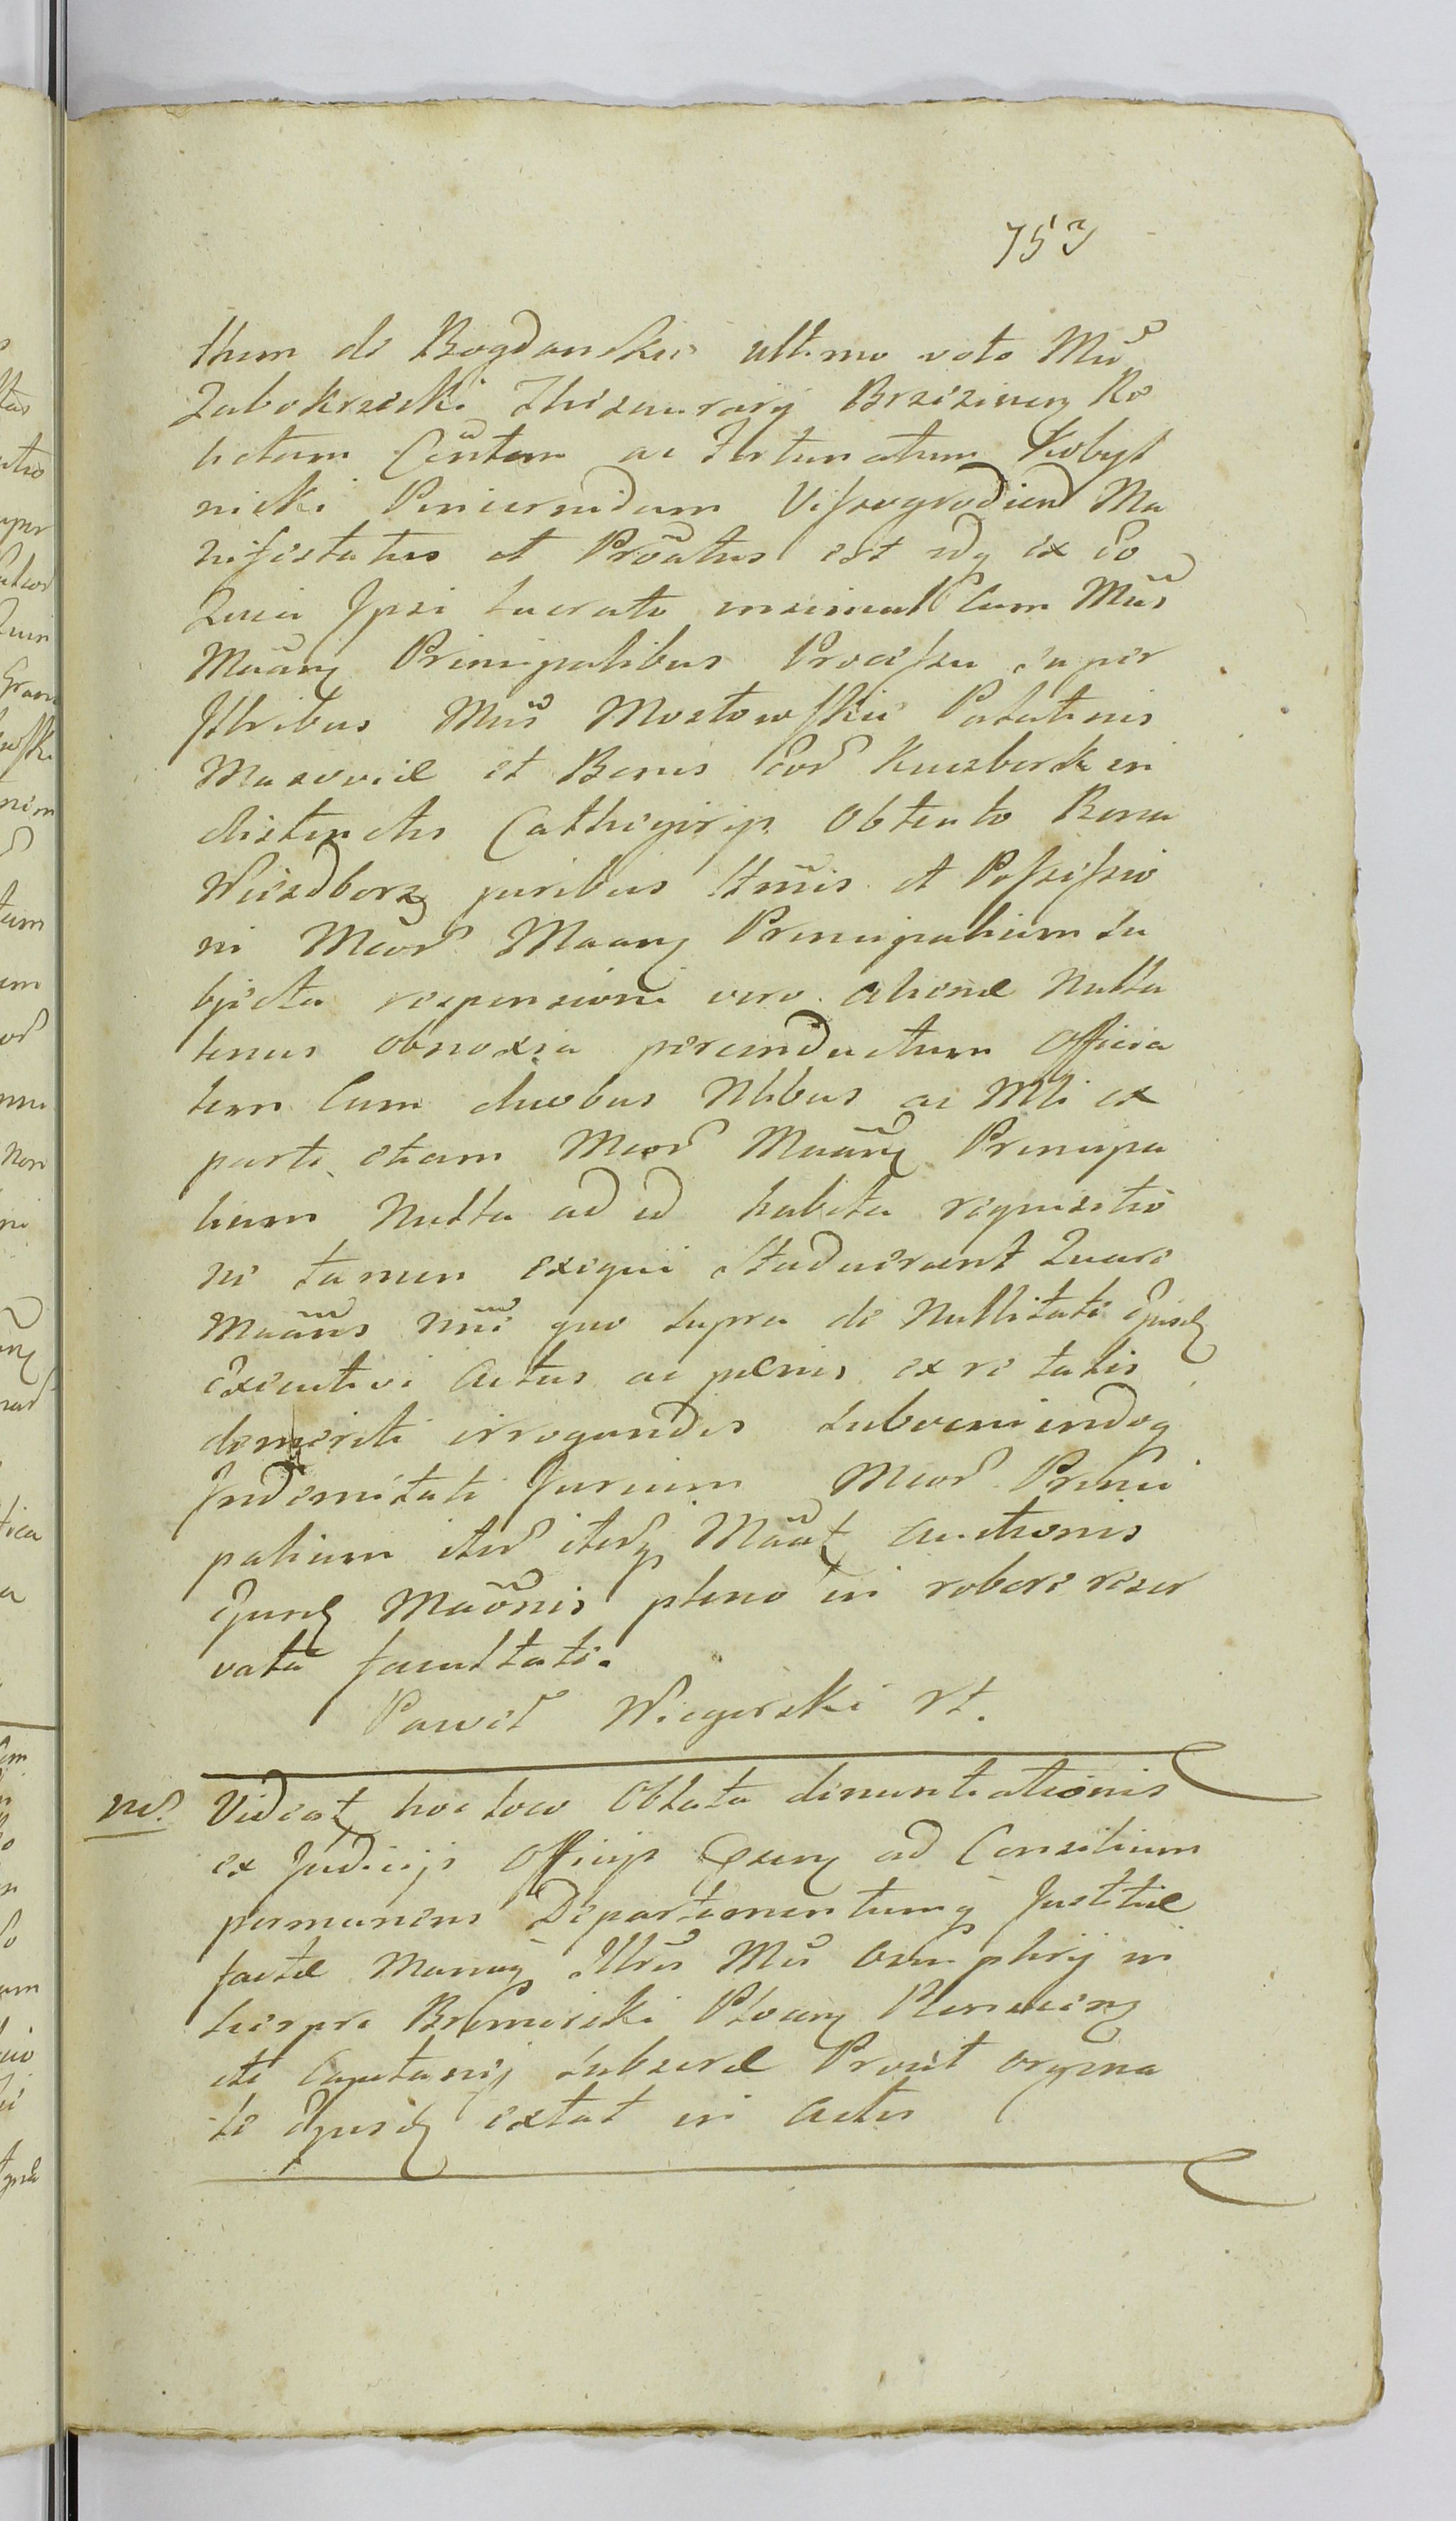 753
tham de Bogdanskie ultimo voto Mci
Zabokrzecki Thesaurarij Brzezinen Re
lictam Coniūtem ac Fortunatum Kobyl
nicki Pincernidam Vissogrodien Ma
nifestatus et Proatus est idq ex Eo
Quia Ipsi lucrato insimul Cum Mcis
Maañ Principalibus Processu super
Illribus Mcis Mostowskie Palatinis
Masoviæ et Bonis Eor Kuczbork in
distinctis Cathegorijs obtento Bona
Wieszdborz juribus Strnis et Possessio
ni Mcor Maañ Principalium su
bjecta responsioni vero alienæ nulla
tenus obnoxia per inductum Officia
lem Cum duobus Nlibus ac Mli ex
parte etiam Mcor Maañ Principa
lium Nulla ad id habita requisitio
ne tamen exequi studuerunt Quare
Maañs nñe quo supra de Nullitate Ejusd
Executivi Actus ac pænis ex re talis
demeriti irrogandis subveniendoq
Indemnitati Jurium Mcor Princi
palium iter iterq Maat auctionis
Ejusd Maaõnis pleno in robore reser
vata facultate.
Paweł Wiegerski rt.
Nd. Videat hoc loco Oblata denuntiationis
ex Judicijs Officijs ad Consilium
permanens Departamentumq Justitiæ
factæ Manuq Illris Mci Onuphrij in
Bromirski Plocen
et Capitanij subscræ Prout orygina
le Ejusd extat in Actis